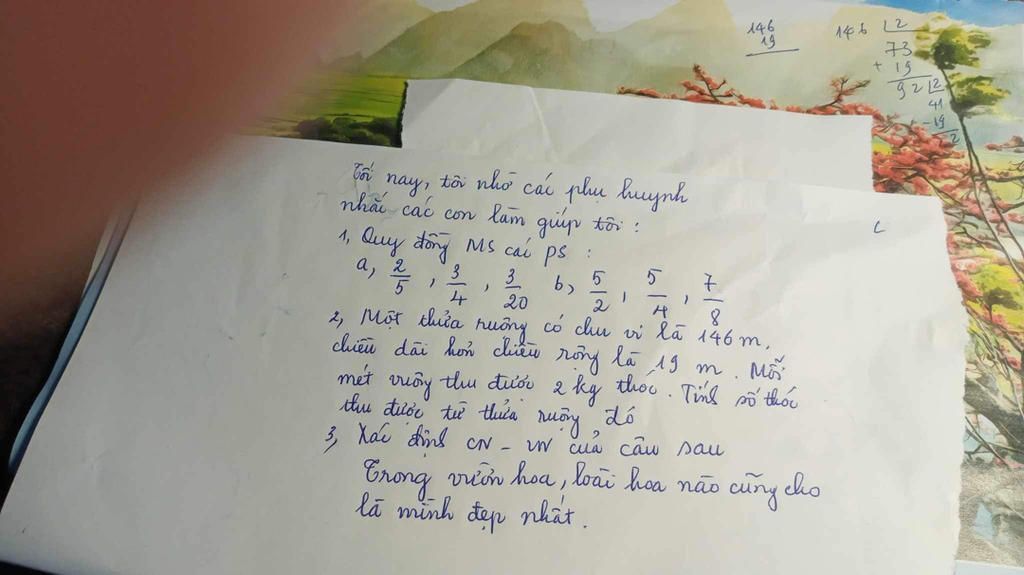 146
19
146 2
73
+ 19
92 2
41
- 19
2
Tối nay, tôi nhờ các phụ huynh
nhắc các con làm giúp tôi :
1, Quy đồng MS các PS :
a, 2/5 , 3/4 , 3/20 b, 5/2 , 5/4 , 7/8
2, Một thửa ruộng có chu vi là 146 m,
chiều dài hơn chiều rộng là 19 m. Mỗi
mét vuông thu được 2 kg thóc. Tính số thóc
thu được từ thửa ruộng đó
3, Xác định CN - VN của câu sau
Trong vườn hoa, loài hoa nào cũng cho
là mình đẹp nhất.